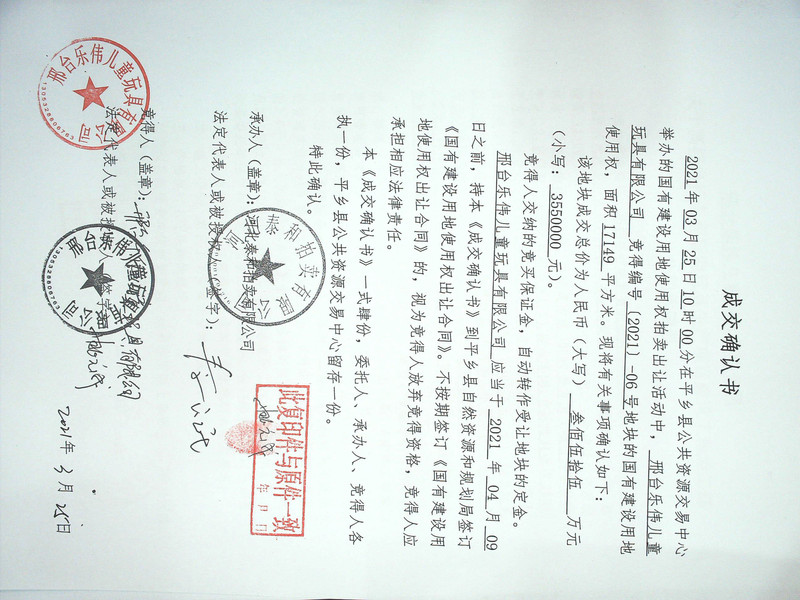 成交确认书
2021 年 03 月 25 日 10 时 00 分在平乡县公共资源交易中心
举办的国有建设用地使用权拍卖出让活动中，邢台乐伟儿童
玩具有限公司 竞得编号（2021）-06 号地块的国有建设用地
使用权，面积 17149 平方米。现将有关事项确认如下：
该地块成交总价为人民币（大写） 叁佰伍拾伍 万元
（小写： 3550000 元）。
竞得人交纳的竞买保证金，自动转作受让地块的定金。
邢台乐伟儿童玩具有限公司 应当于 2021 年 04 月 09
日之前，持本《成交确认书》到平乡县自然资源和规划局签订
《国有建设用地使用权出让合同》。不按期签订《国有建设用
地使用权出让合同》的，视为竞得人放弃竞得资格，竞得人应
承担相应法律责任。
本《成交确认书》一式肆份，委托人、承办人、竞得人各
执一份，平乡县公共资源交易中心留存一份。
特此确认。
承办人（盖章）：河北泰和拍卖有限公司
法定代表人或被授权人（签字）：
此复印件与原件一致
年 月 日
竞得人（盖章）：
法定代表人或被授权人（签字）：
2021年 3月 25日
邢台乐伟儿童玩具有限公司
1305328808763
邢台乐伟儿童玩具有限公司
1305328808763